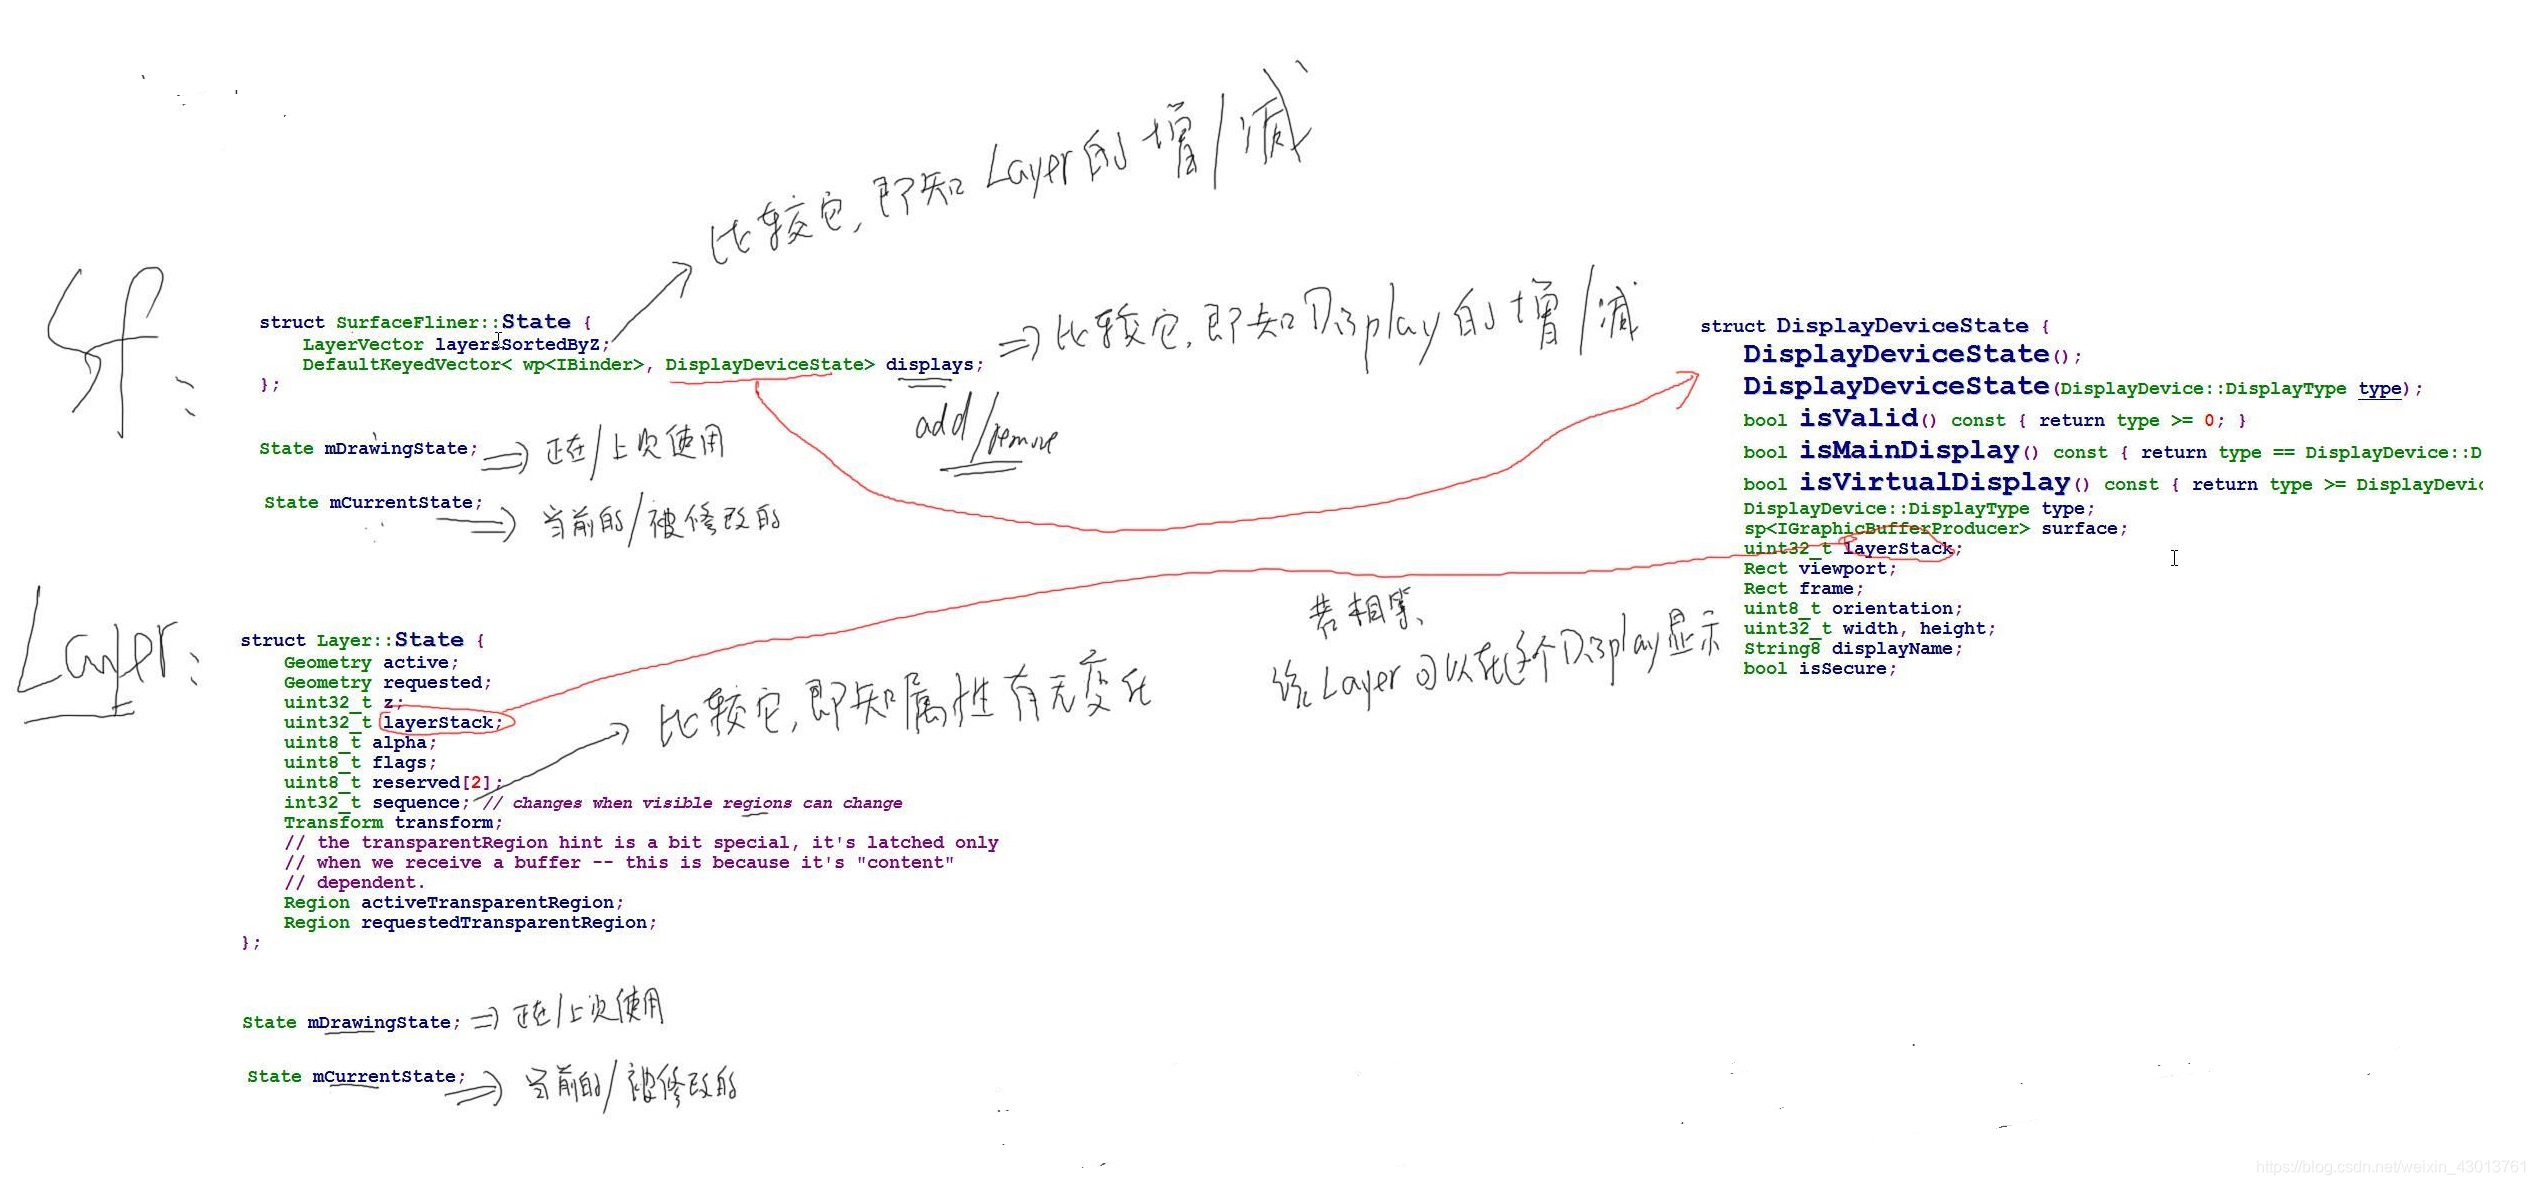 比较它,即知Layer的增/减
Sf:
struct SurfaceFliner::State {
LayerVector layersSortedByZ;
DefaultKeyedVector< wp<IBinder>, DisplayDeviceState> displays;
};
=> 比较它,即知Display的增/减
add/remove
State mDrawingState; => 正在/上次使用
State mCurrentState; => 当前的/被修改的
struct DisplayDeviceState {
DisplayDeviceState();
DisplayDeviceState(DisplayDevice::DisplayType type);
bool isValid() const { return type >= 0; }
bool isMainDisplay() const { return type == DisplayDevice::D
bool isVirtualDisplay() const { return type >= DisplayDevic
DisplayDevice::DisplayType type;
sp<IGraphicBufferProducer> surface;
uint32_t layerStack;
Rect viewport;
Rect frame;
uint8_t orientation;
uint32_t width, height;
String8 displayName;
bool isSecure;
若相等、
Layer可以在这个Display显示
Layer:
struct Layer::State {
Geometry active;
Geometry requested;
uint32_t z;
uint32_t layerStack;
uint8_t alpha;
uint8_t flags;
uint8_t reserved[2];
int32_t sequence; // changes when visible regions can change
Transform transform;
// the transparentRegion hint is a bit special, it's latched only
// when we receive a buffer -- this is because it's "content"
// dependent.
Region activeTransparentRegion;
Region requestedTransparentRegion;
};
比较它,即知属性有无变化
State mDrawingState; => 正在/上次使用
State mCurrentState; => 当前的/被修改的
https://blog.csdn.net/weixin_43013761